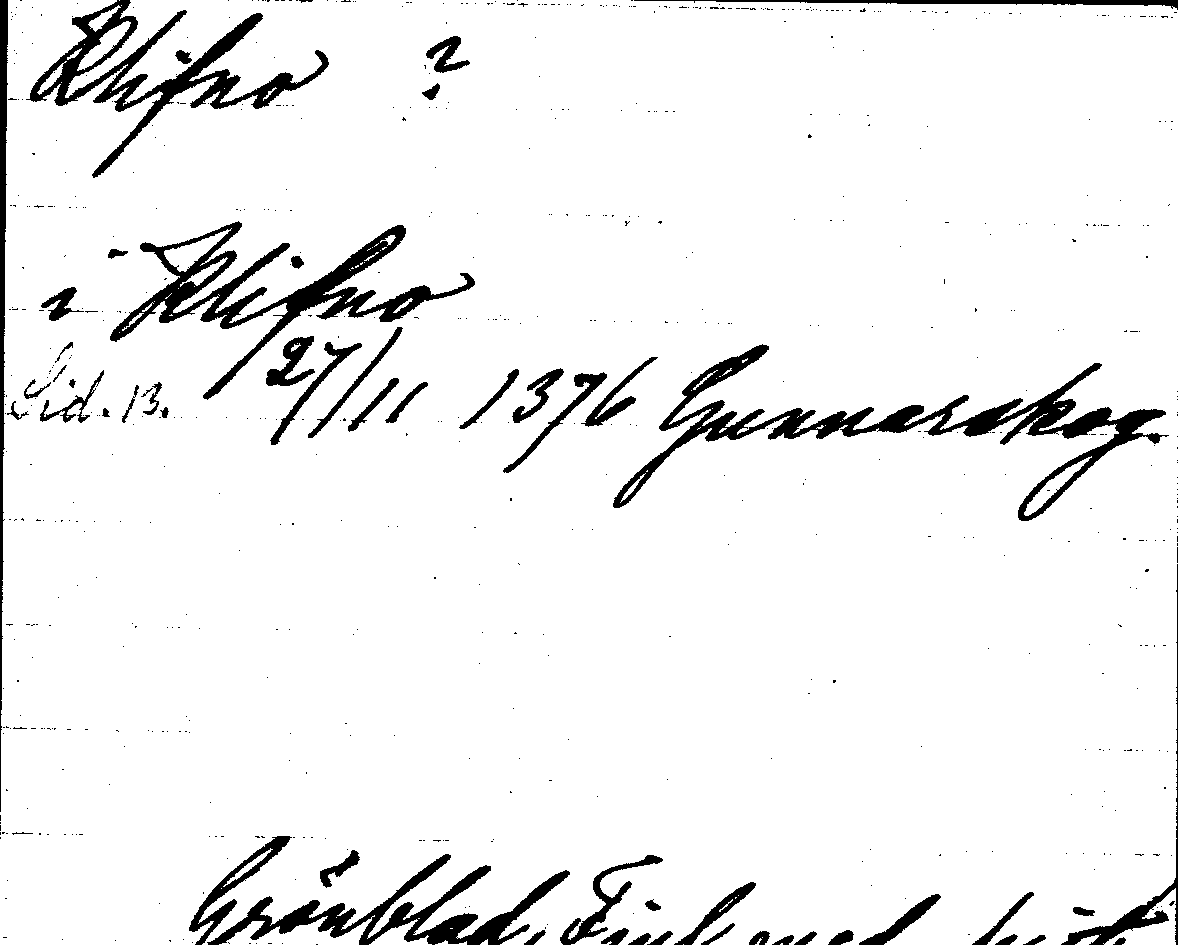 Klifno ?
i Klifno
Sid. 13. 27/11 1376 Gunnarskog.
Grönblad, Finl. med.